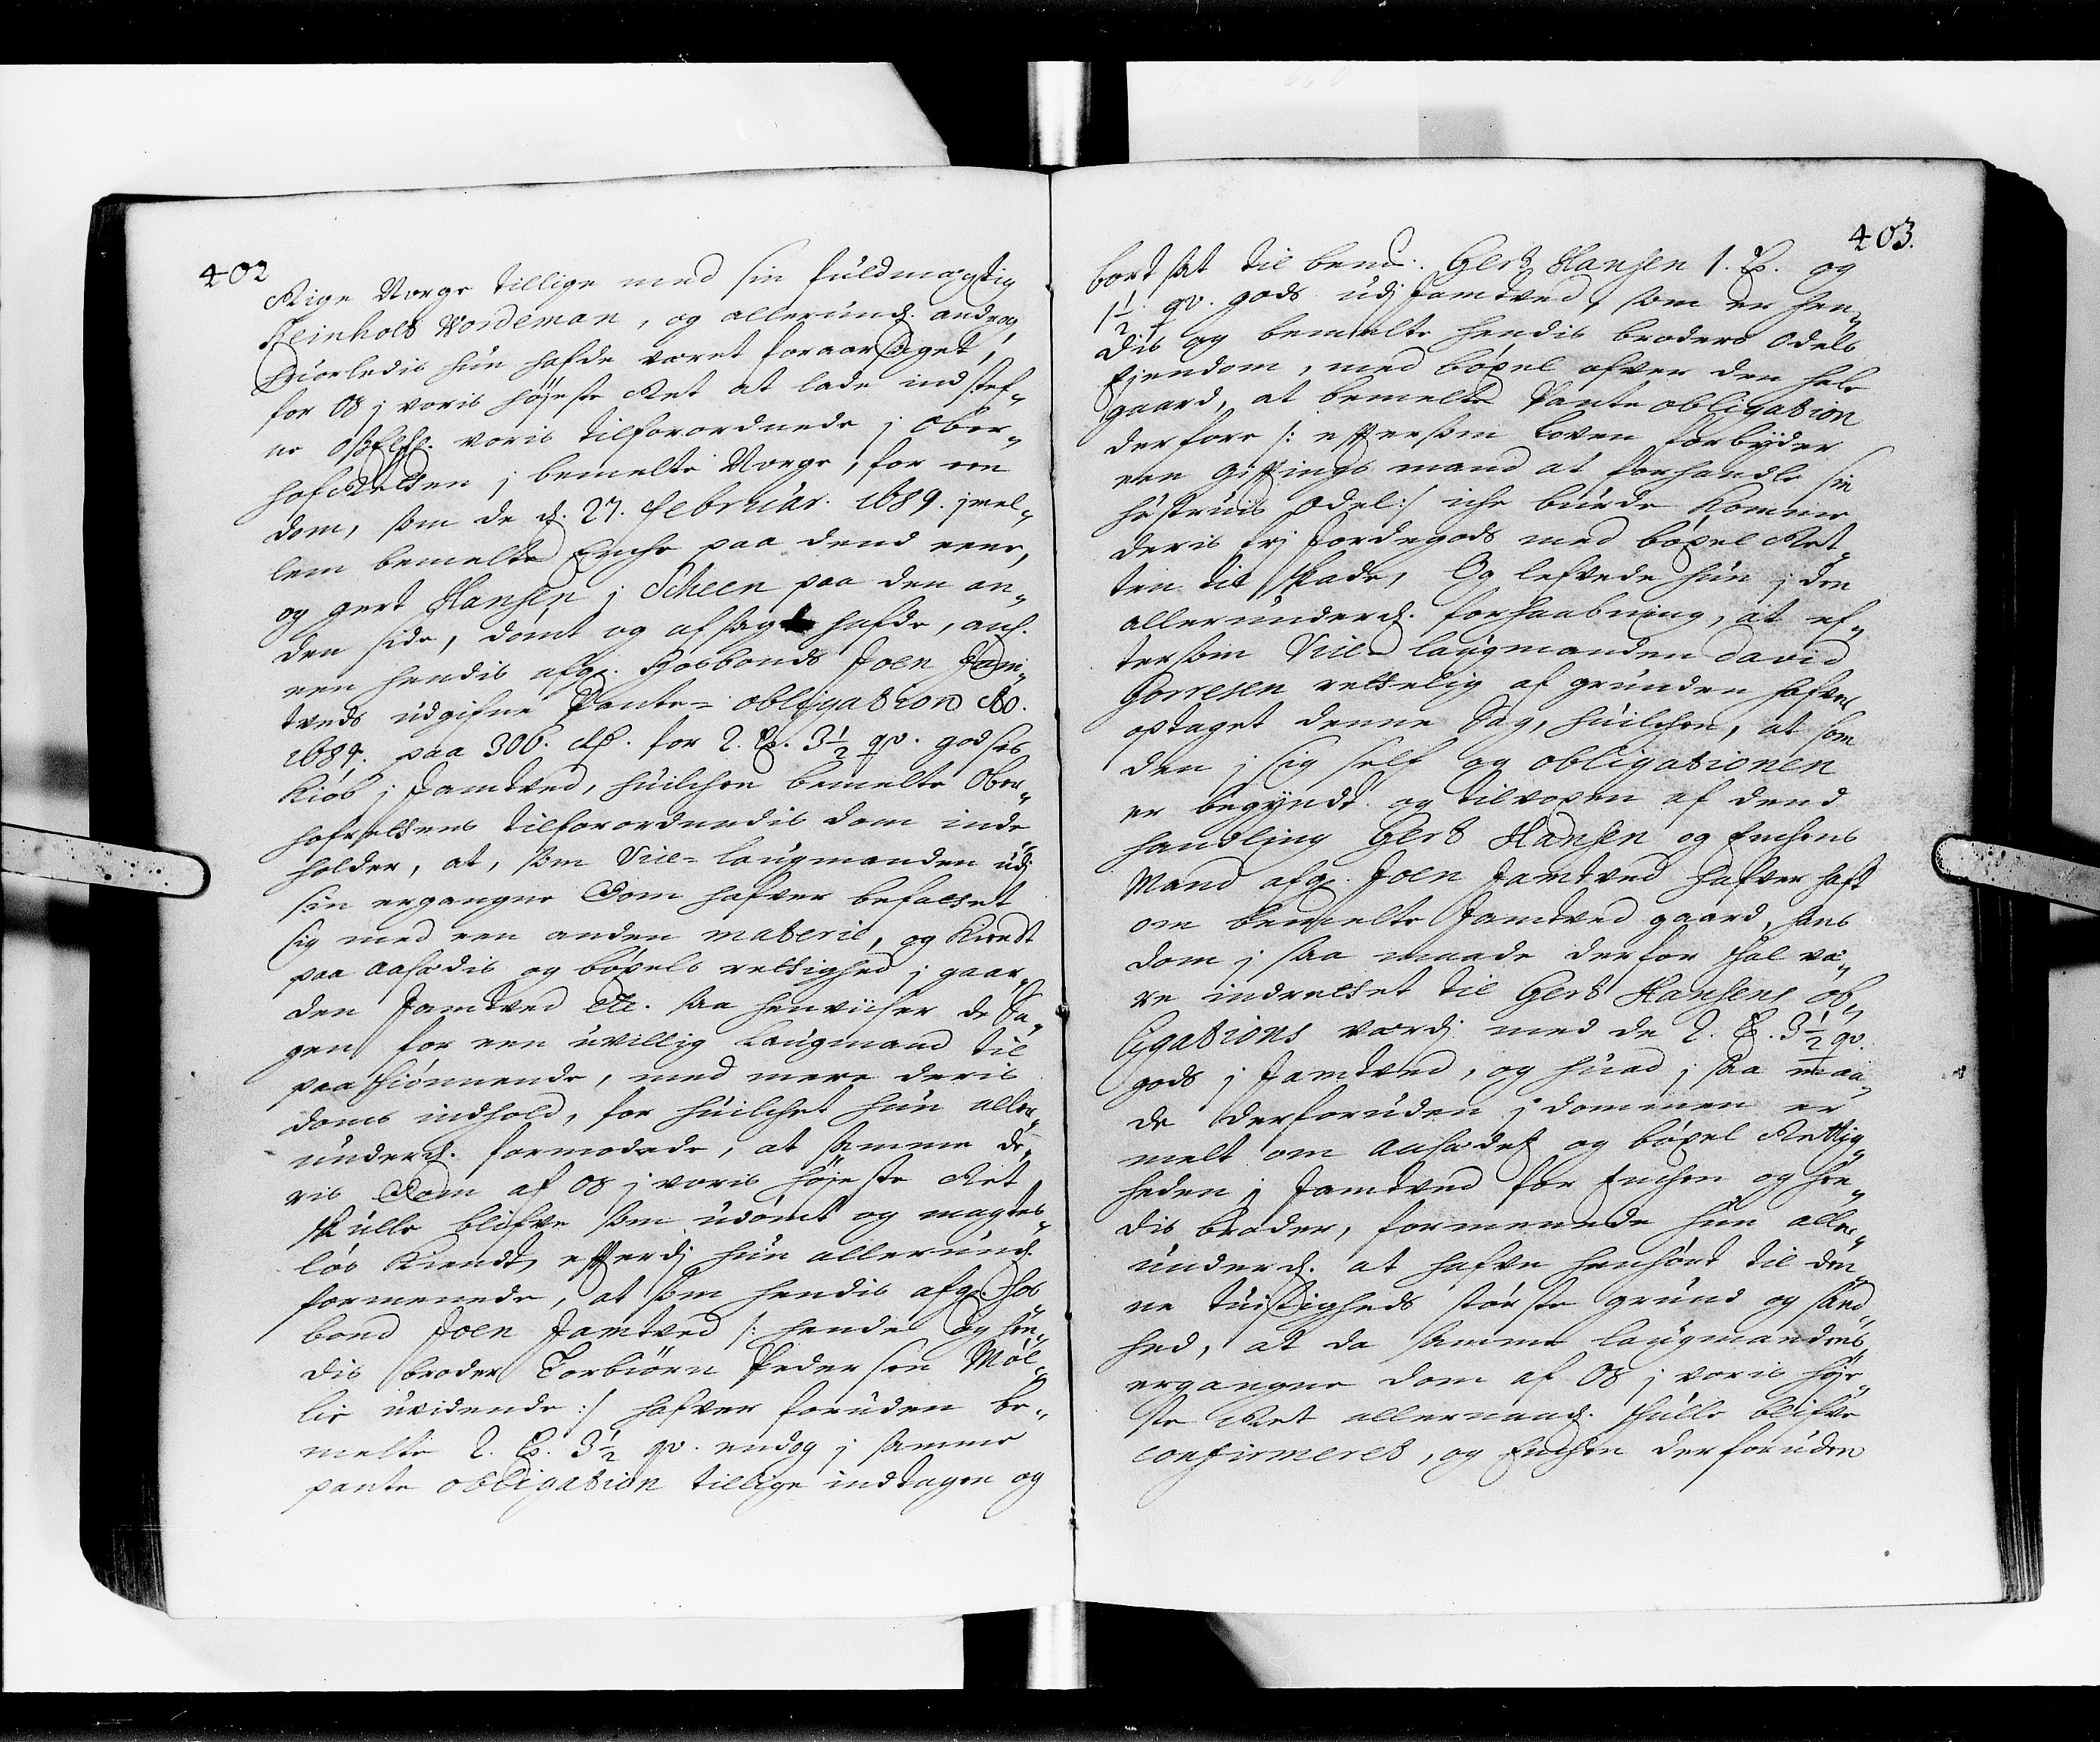 402
Rige Norge tillige med sin fuldmægtig
Reinholt Wordeman, og allerund. androg
huorledis hun hafde været foraarsaget,
for OS j voris høyeste Ret at lade indstef„
ne Oß Elsk. voris tilforordnede j Ober„
hofRetten j bemelte Norge, for een
dom, som de d. 27. Februar. 1689. jmel„
lem bemelte Enche paa dend eene,
og gert Hansen j Scheen paa den an„
den side, dømt og afsagt hafde, anl.
een hendis afg. Hosbonds Joen Jam„
tveds udgifne Pante-obligation Ao.
1684. paa 306. Rd. for 2. B. 3½ qv. godses
Kiøb j Jamtved, huilchen bemelte Ober„
hofrettens tilforordnedis dom inde„
holder, at, som Vice-laugmanden udj
sin ergangne Dom hafver befattet
sig med een anden materie, og kiendt
paa aasædis og bøxels rettighed j gaar„
den Jamtved etc. saa henviiser de Sa„
gen for een uvillig Laugmand til
paaskiønnende, med mere deris
doms indhold, for huilchet hun aller„
underd. formodede, at samme de„
ris Dom af OS j voris høyeste Ret
skulle blifve som udømt og magtes„
løs kiendt, efterdj hun allerund.
formeenede, at som hendis afg. Hos„
bond Joen Jamtved /: hende og hen„
dis broder Torbiørn Pedersen Møl„
lie uvidende :/ hafver foruden be„
melte 2. B. 3½ qv. endog j samme
pante obligation tillige indtagen og
403.
bortsat til bem. Gert Hansen 1. B. og
1½ qv. gods udj Jamtved, som er hen„
dis og bemelte hendis broders Odels
Eiendom, med bøxel ofver den hele
gaard, at bemelte Pante obligation
derfore /: eftersom Loven forbyder
een Giftings mand at forhandle sin
hustruis Odel :/ iche burde komme
deris frj Jordegods med bøxel Ret„
ten til skade, Og lefvede hun j den
allerunderd. forhaabning, at ef„
tersom Vice-laugmanden David
Gorresen rettelig af grunden hafver
optaget denne Sag, huilchen, at som
den j sig self og obligationen
er begyndt og tilvoxen af dend
handling Gert Hansen og Enchens
Mand afg. Joen Jamtved hafver haft
om bemelte Jamtved gaard, hans
dom j saa maade derfor skal væ„
re indrettet til Gert Hansens ob„
ligations værdj med de 2. B. 3½ qv.
gods j Jamtved, og huad j saa maa„
de derforuden j dommen er
melt om aasædes og bøxel Rettig„
heden j Jamtved for Enchen og hen„
dis broder, formeenede hun aller„
underd. at hafve henhørt til den„
ne tuistigheds største grund og sand„
hed, at da samme laugmandens
ergangne dom af OS j voris høye„
ste Ret allernaad. skulle blifve
confirmeret, og Enchen derforuden